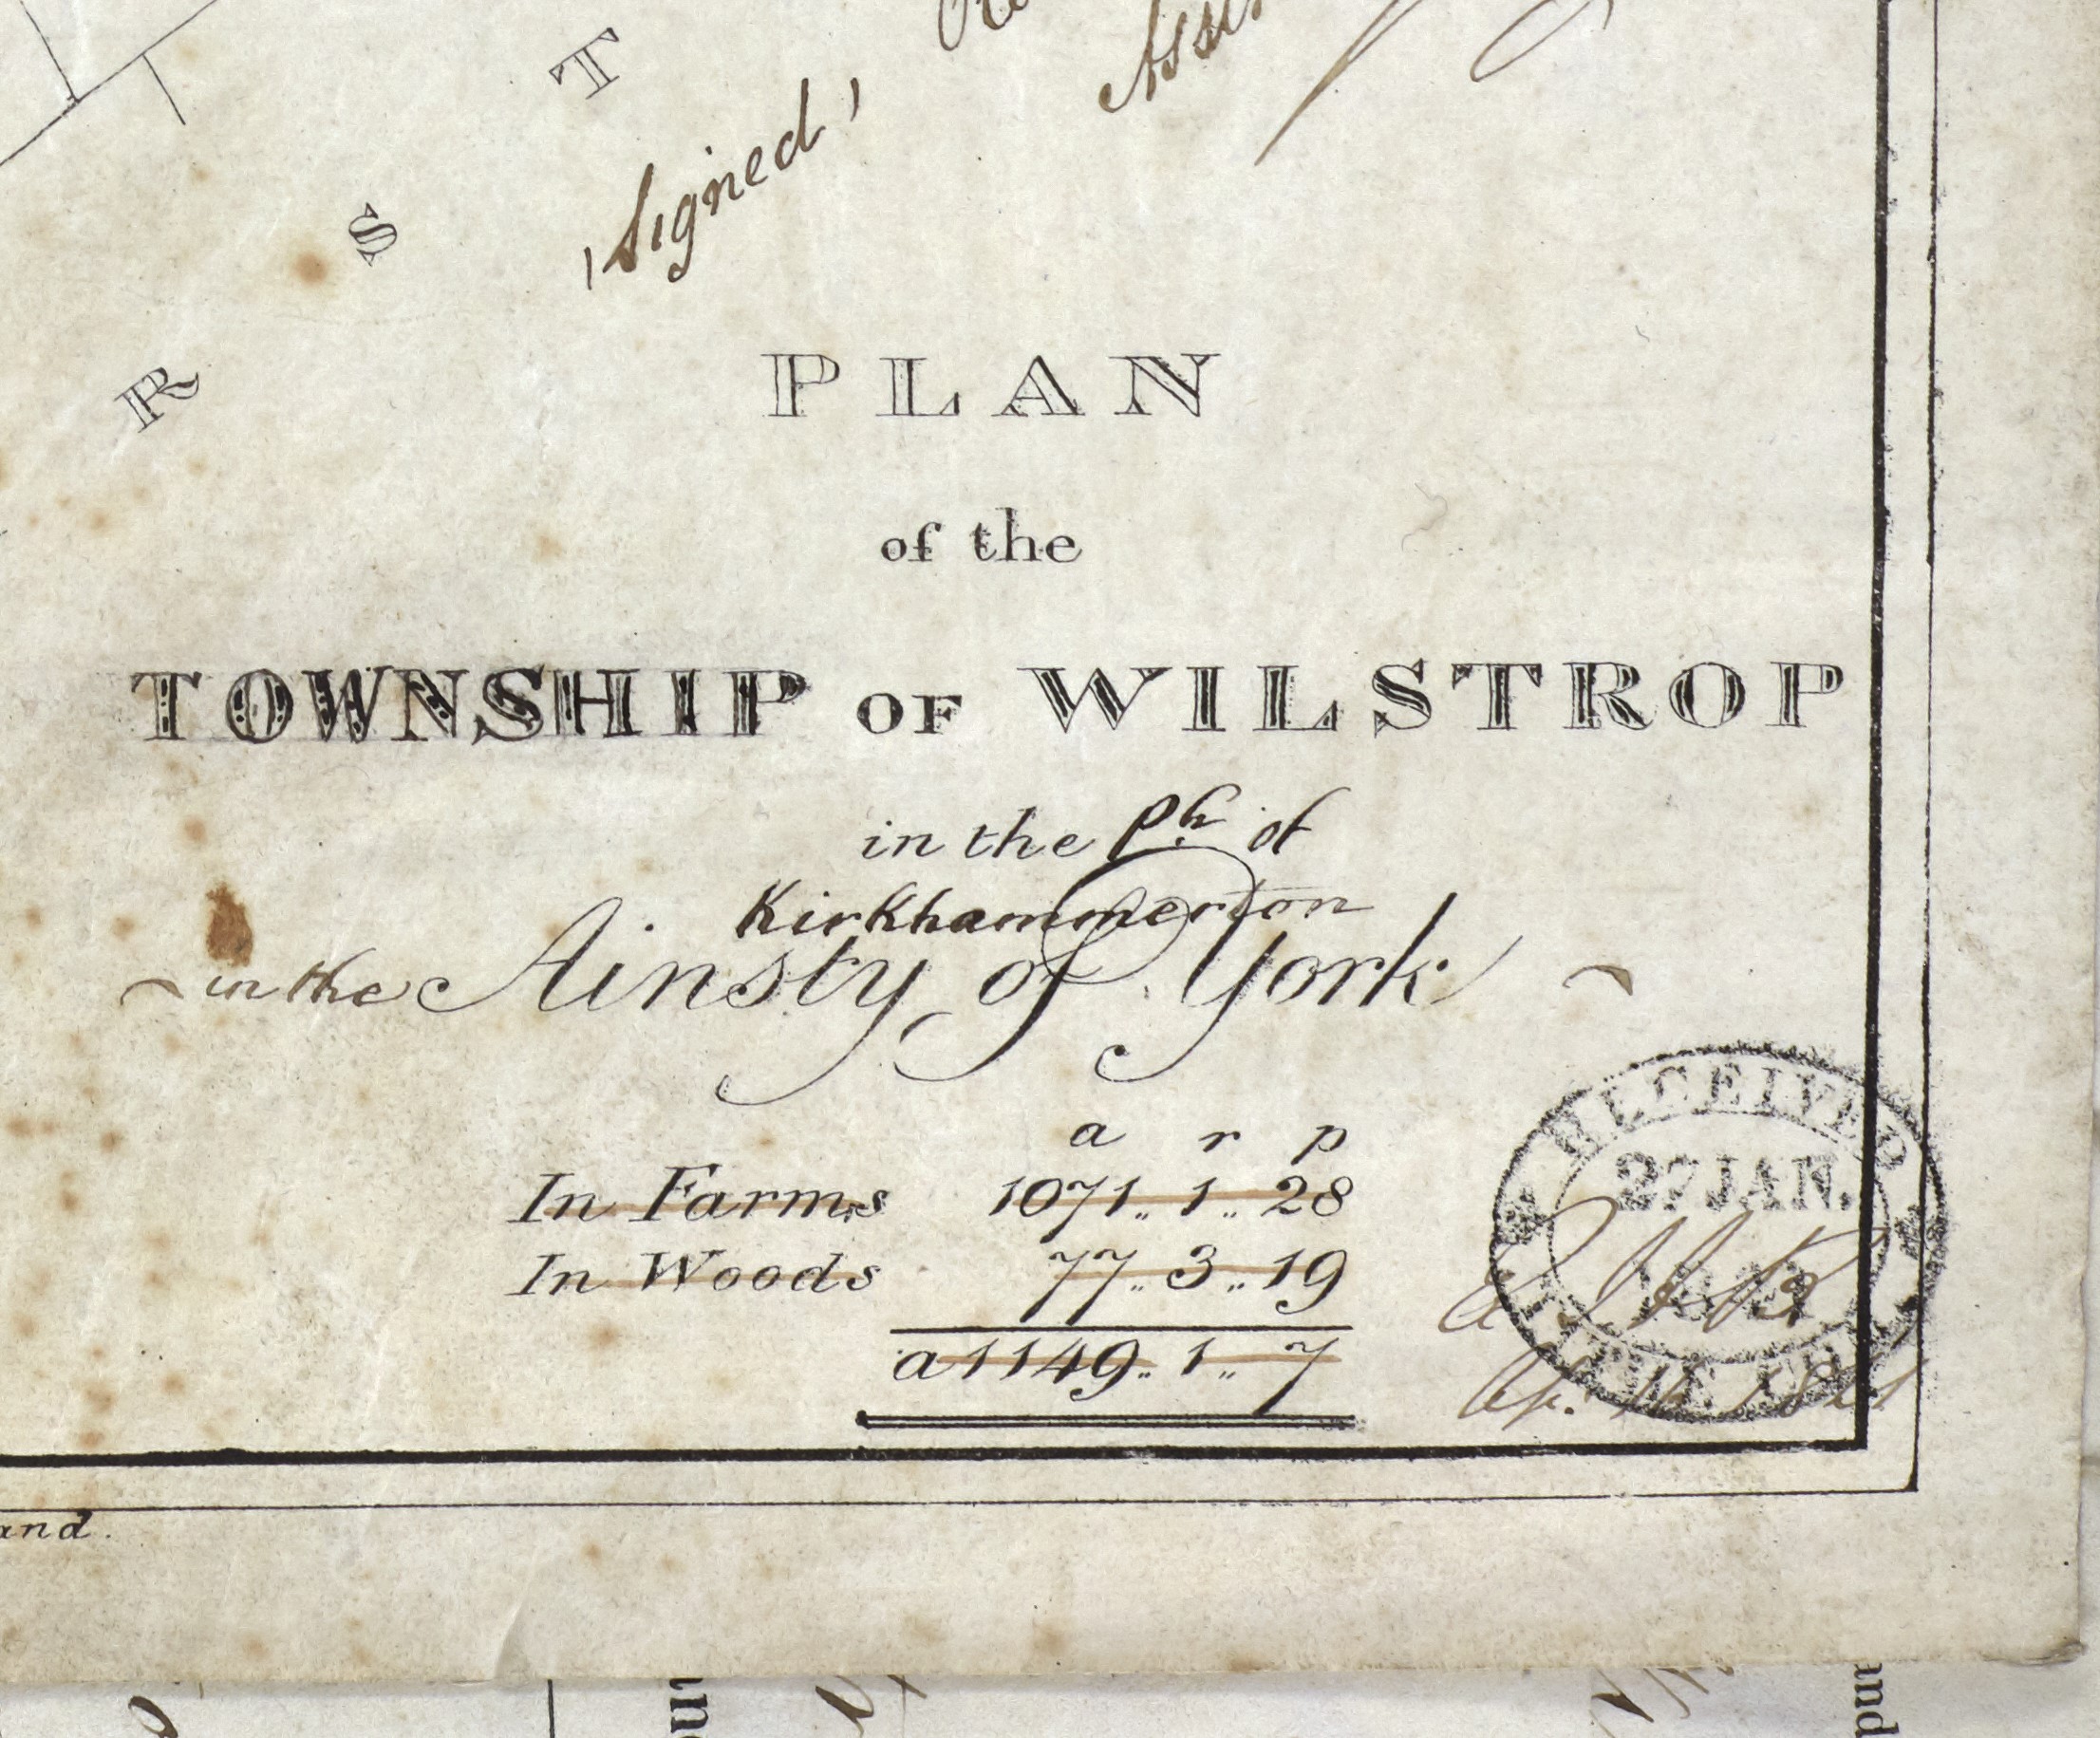 T
S
R
Signed,
PLAN
of the
TOWNSHIP OF WILSTROP
in the Ph. of
Kirkhammerton
in the Ainsty of York
a r p
In Farms 1071.. 1.. 28
In Woods 77.. 3.. 19
a1149.. 1.. 7
RECEIVED
27 JAN.
and.
and